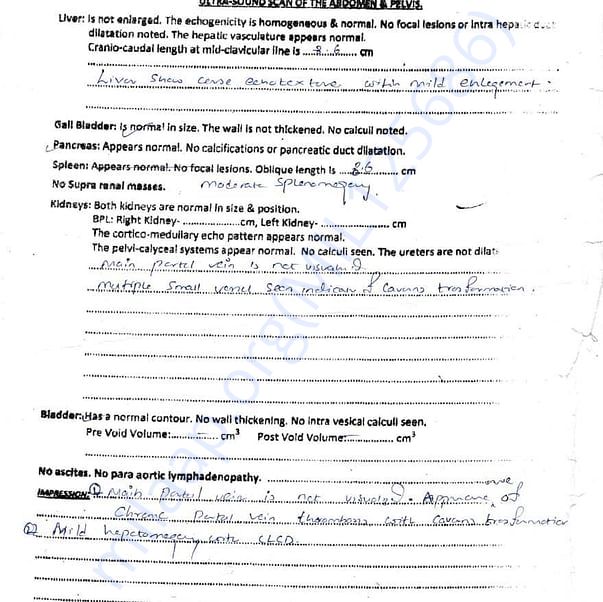 ULTRA-SOUND SCAN OF THE ABDOMEN & PELVIS.
Liver: Is not enlarged. The echogenicity is homogeneous & normal. No focal lesions or intra hepatic duct
dilatation noted. The hepatic vasculature appears normal.
Cranio-caudal length at mid-clavicular line is ....8.6.... cm
Liver show coarse echotexture within mild enlargement.
Gall Bladder: Is normal in size. The wall is not thickened. No calculi noted.
Pancreas: Appears normal. No calcifications or pancreatic duct dilatation.
Spleen: Appears normal. No focal lesions. Oblique length is ....8.6.... cm
No Supra renal masses. moderate Splenomegaly.
Kidneys: Both kidneys are normal in size & position.
BPL: Right Kidney- ....................cm, Left Kidney- ........................ cm
The cortico-medullary echo pattern appears normal.
The pelvi-calyceal systems appear normal. No calculi seen. The ureters are not dilat
main portal vein is not visualized
multiple small vessel seen indican of Cavans transformation.
Bladder: Has a normal contour. No wall thickening. No intra vesical calculi seen.
Pre Void Volume:............... cm³ Post Void Volume:................. cm³
No ascites. No para aortic lymphadenopathy.
IMPRESSION: ① Main portal vein is not visualized. Appearance of
Chronic Portal vein thrombosis with Cavans transformation
② Mild hepatomegaly with CLCD.
milaap.org(MIL125686)